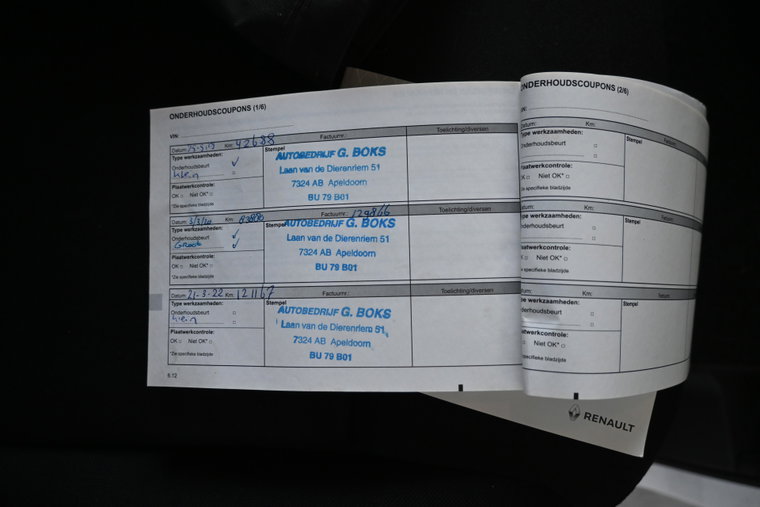 ONDERHOUDSCOUPONS (1/6)
VIN:
Datum: Km: 42688 Factuurnr.: Toelichting/diversen
Type werkzaamheden: Stempel
Onderhoudsbeurt
klein
Plaatwerkcontrole:
OK □ Niet OK* □
*Zie specifieke bladzijde
AUTOBEDRIJF G. BOKS
Laan van de Dierenriem 51
7324 AB Apeldoorn
BU 79 B01
Datum: Km: Factuurnr.: Toelichting/diversen
Type werkzaamheden: Stempel
Onderhoudsbeurt
Groot
Plaatwerkcontrole:
OK □ Niet OK* □
*Zie specifieke bladzijde
AUTOBEDRIJF G. BOKS
Laan van de Dierenriem 51
7324 AB Apeldoorn
BU 79 B01
Datum: 21-3-22 Km: 121167 Factuurnr.: Toelichting/diversen
Type werkzaamheden: Stempel
Onderhoudsbeurt
klein
Plaatwerkcontrole:
OK □ Niet OK* □
*Zie specifieke bladzijde
AUTOBEDRIJF G. BOKS
Laan van de Dierenriem 51
7324 AB Apeldoorn
BU 79 B01
6.12
ONDERHOUDSCOUPONS (2/6)
VIN:
Datum: Km: Factuurnr.:
Type werkzaamheden: Stempel
Onderhoudsbeurt
Plaatwerkcontrole:
OK □ Niet OK* □
*Zie specifieke bladzijde
Datum: Km: Factuurnr.:
Type werkzaamheden: Stempel
Onderhoudsbeurt
Plaatwerkcontrole:
OK □ Niet OK* □
*Zie specifieke bladzijde
Datum: Km: Factuurnr.:
Type werkzaamheden: Stempel
Onderhoudsbeurt
Plaatwerkcontrole:
OK □ Niet OK* □
*Zie specifieke bladzijde
RENAULT